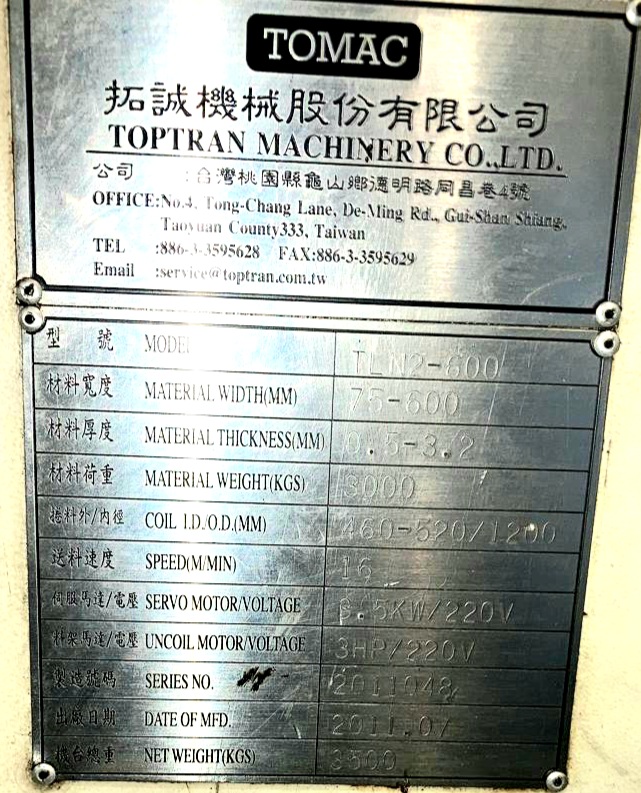 TOMAC
拓誠機械股份有限公司
TOPTRAN MACHINERY CO.,LTD.
公司 :台灣桃園縣龜山鄉德明路同昌巷4號
OFFICE:No.4, Tong-Chang Lane, De-Ming Rd., Gui-Shan Shiang,
Taoyuan County333, Taiwan
TEL :886-3-3595628 FAX:886-3-3595629
Email :service@toptran.com.tw
型 號 MODEL TLN2-600
材料寬度 MATERIAL WIDTH(MM) 75-600
材料厚度 MATERIAL THICKNESS(MM) 0.5-3.2
材料荷重 MATERIAL WEIGHT(KGS) 3000
捲料外/內徑 COIL I.D./O.D.(MM) 460-520/1200
送料速度 SPEED(M/MIN) 16
伺服馬達/電壓 SERVO MOTOR/VOLTAGE
料架馬達/電壓 UNCOIL MOTOR/VOLTAGE 3HP/220V
製造號碼 SERIES NO. 2011048
出廠日期 DATE OF MFD. 2011.07
機台總重 NET WEIGHT(KGS) 3500